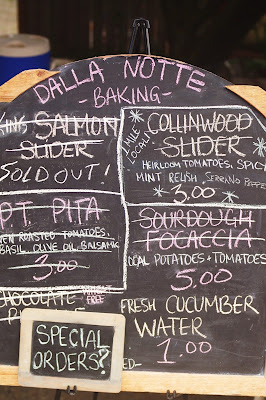 DALLA NOTTE
- BAKING -
SALMON
SLIDER
SOLD OUT!
PT PITA
ROASTED TOMATOES,
BASIL OLIVE OIL BALSAMIC
3.00
CHOCOLATE
FREE
COLLINWOOD
SLIDER
HEIRLOOM TOMATOES, SPICY
MINT RELISH SERRANO PEPPER
3.00
SOURDOUGH
FOCACCIA
LOCAL POTATOES + TOMATOES
5.00
FRESH CUCUMBER
WATER
1.00
SPECIAL
ORDERS?